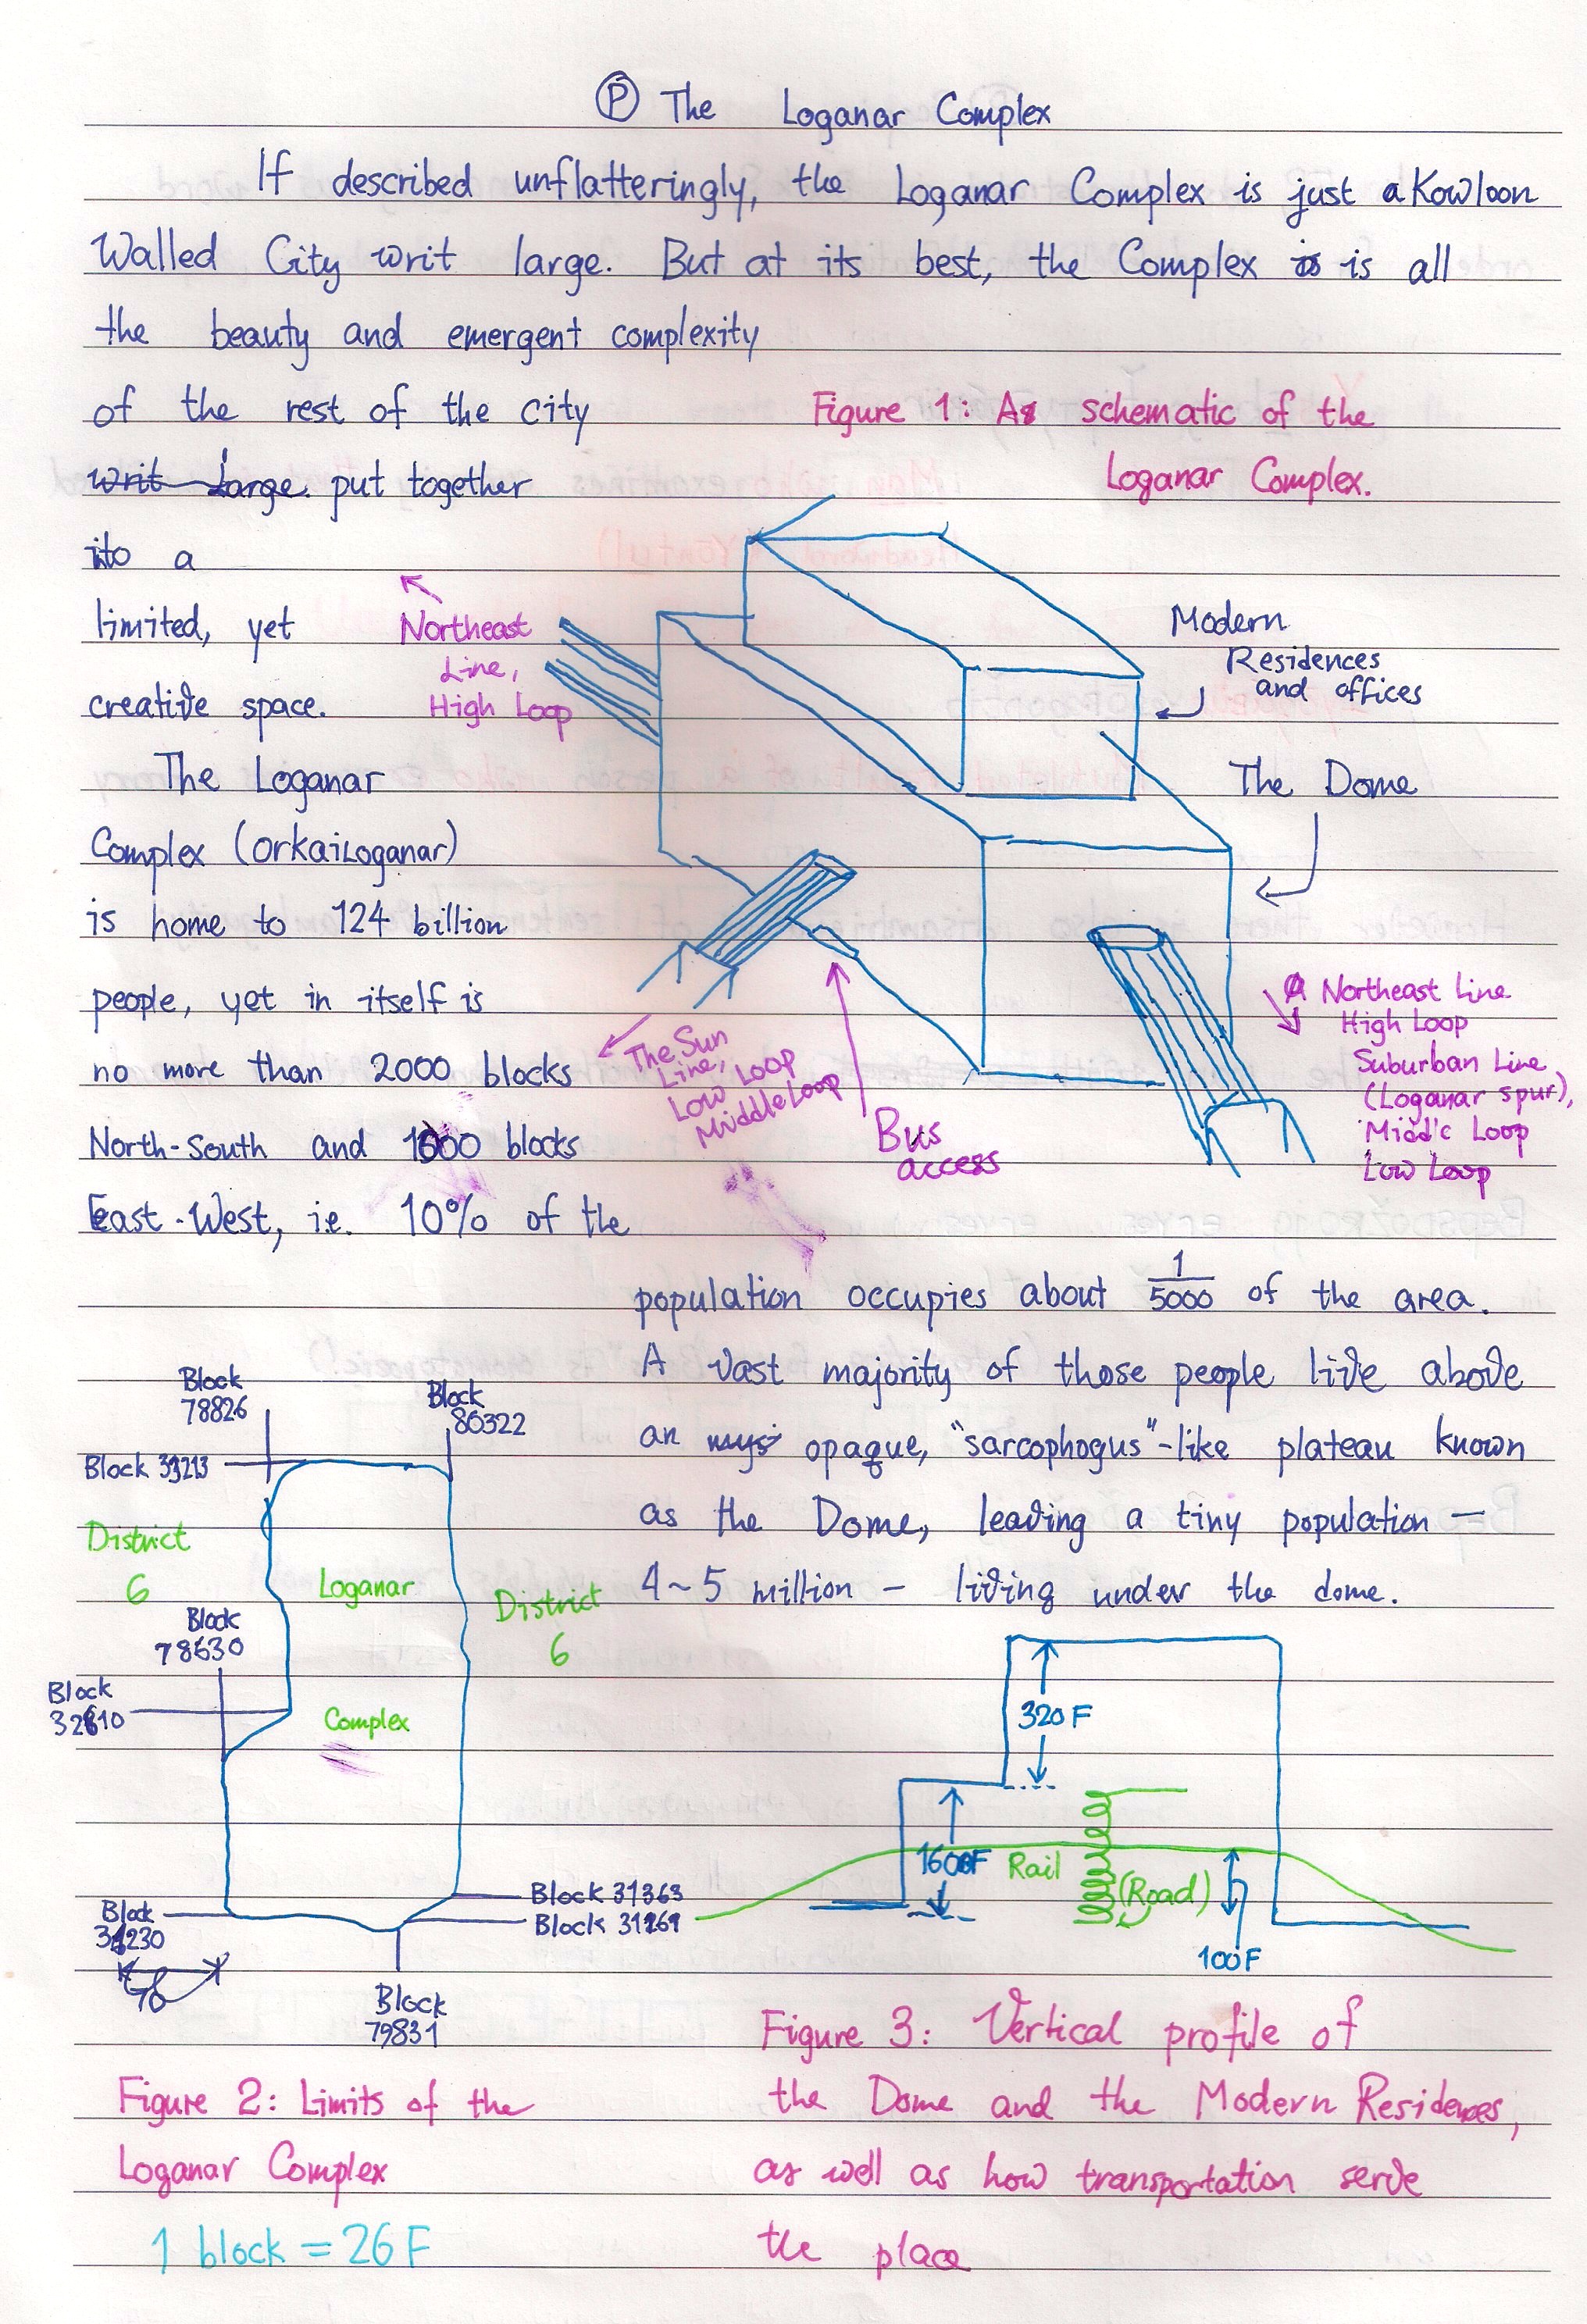 Ⓟ The Loganar Complex
If described unflatteringly, the Loganar Complex is just a Kowloon
Walled City writ large. But at its best, the Complex is is all
the beauty and emergent complexity
of the rest of the city
writ large. put together
ito a
limited, yet
creative space.
The Loganar
Complex (orkaiLoganar)
is home to 124 billion
people, yet in itself is
no more than 2000 blocks
North-South and 1000 blocks
East-West, i.e. 10% of the
population occupies about 1/5000 of the area.
A vast majority of those people live above
an opaque, "sarcophogus"-like plateau known
as the Dome, leaving a tiny population —
4~5 million — living under the dome.
Figure 1: A schematic of the
Loganar Complex.
Northeast
Line,
High Loop
Modern
Residences
and offices
The Dome
The Sun
Line,
Low Loop
Middle Loop
Bus
access
Northeast Line
High Loop
Suburban Line
(Loganar spur),
Middle Loop
Low Loop
Block
78826
Block
80322
Block 33213
District
6
Loganar
District
6
Block
78630
Block
32810
Complex
Block 31363
Block 31269
Block
31230
Block
79831
Figure 2: Limits of the
Loganar Complex
1 block = 26 F
320 F
160 F
Rail
(Road)
100 F
Figure 3: Vertical profile of
the Dome and the Modern Residences,
as well as how transportation serve
the place